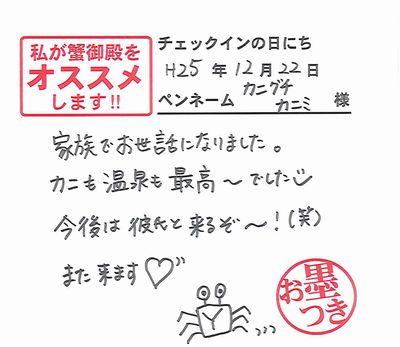 私が蟹御殿を
オススメ
します!!
チェックインの日にち
H25 年 12 月 22 日
ペンネーム カニグチ カニミ 様
家族でお世話になりました。
カニも温泉も最高〜でした
今後は彼氏と来るぞ〜!(笑)
また来ます♡
お墨つき